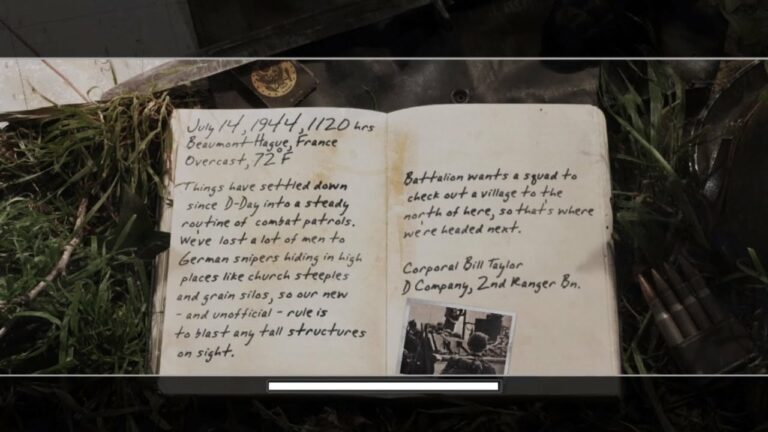 July 14, 1944, 1120 hrs
Beaumont Hague, France
Overcast, 72°F
Things have settled down
since D-Day into a steady
routine of combat patrols.
We've lost a lot of men to
German snipers hiding in high
places like church steeples
and grain silos, so our new
- and unofficial - rule is
to blast any tall structures
on sight.
Battalion wants a squad to
check out a village to the
north of here, so that's where
we're headed next.
Corporal Bill Taylor
D Company, 2nd Ranger Bn.